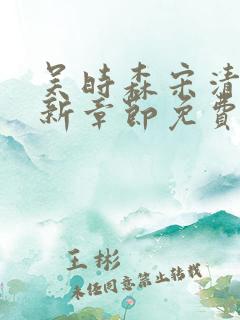 吴时森宋清
新章節免費
王彬
未经同意禁止转载